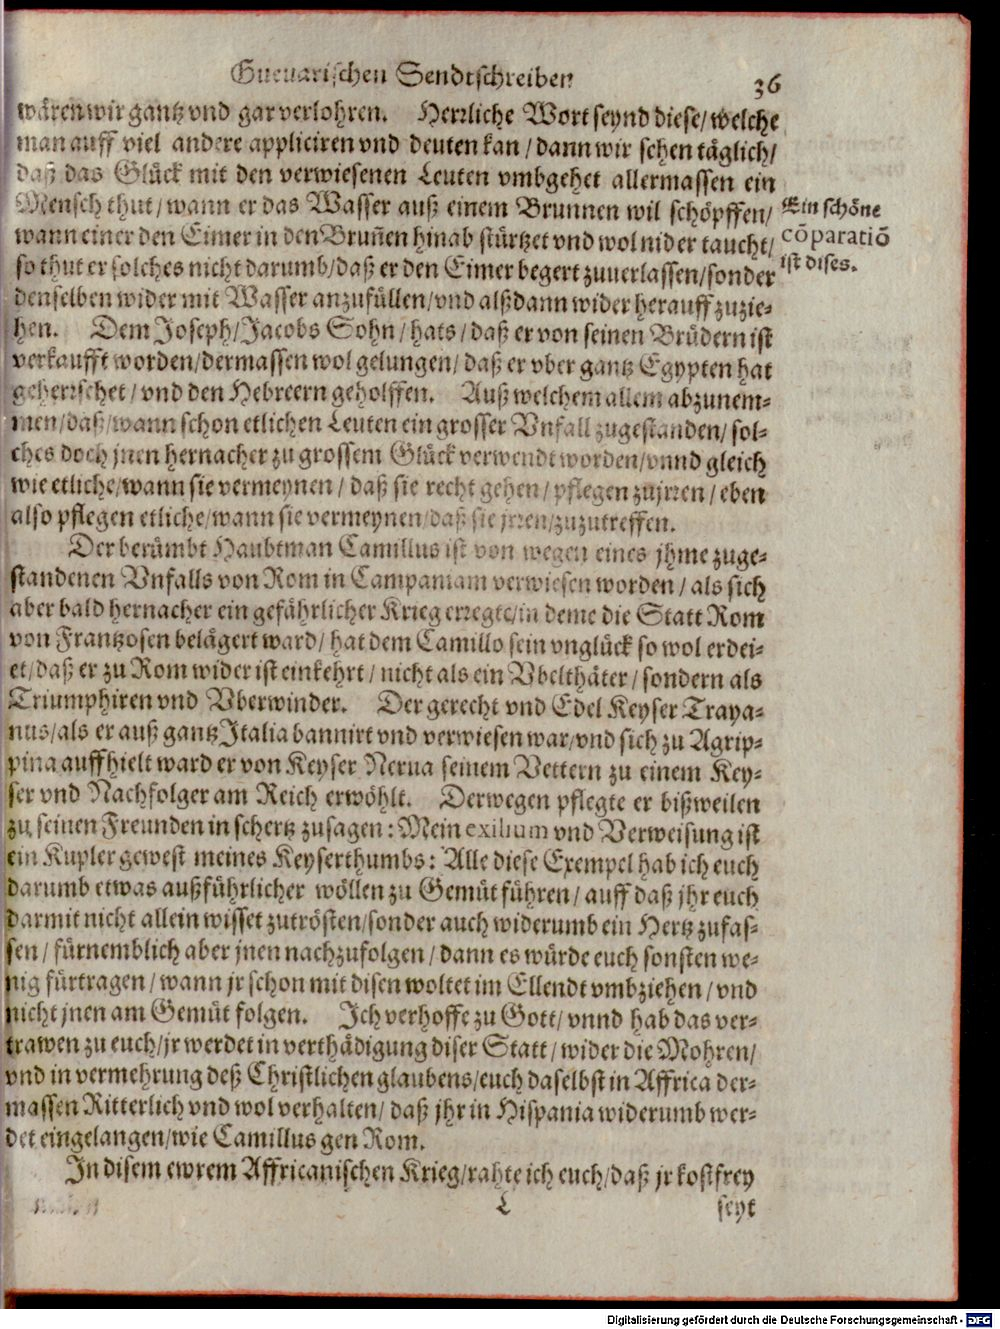 Gueuarischen Sendtschreiben
36
wären wir gantz vnd gar verlohren. Herrliche Wort seynd diese/ welche
man auff viel andere appliciren vnd deuten kan / dann wir sehen täglich/
daß das Glück mit den verwiesenen Leuten vmbgehet allermassen ein
Mensch thut/ wann er das Wasser auß einem Brunnen wil schöpffen/
wann einer den Eimer in den Brun̄en hinab stürtzet vnd wol nider taucht/
so thut er solches nicht darumb/ daß er den Eimer begert zuuerlassen/ sonder
denselben wider mit Wasser anzufüllen/ vnd alßdann wider herauff zuzie-
hen. Dem Joseph/ Jacobs Sohn / hats / daß er von seinen Brüdern ist
verkaufft worden/ dermassen wol gelungen/ daß er vber gantz Egypten hat
geherrschet / vnd den Hebreern geholffen. Auß welchem allem abzunem-
men/ daß/ wann schon etlichen Leuten ein grosser Vnfall zugestanden/ sol-
ches doch jnen hernacher zu grossem Glück verwendt worden/ vnnd gleich
wie etliche/ wann sie vermeynen / daß sie recht gehen/ pflegen zujrren / eben
also pflegen etliche/ wann sie vermeynen/ daß sie jrren/ zuzutreffen.
Ein schöne
cōparatiō
ist dises.
Der berümbt Haubtman Camillus ist von wegen eines jhme zuge-
standenen Vnfalls von Rom in Campaniam verwiesen worden / als sich
aber bald hernacher ein gefährlicher Krieg erregte/ in deme die Statt Rom
von Frantzosen belägert ward/ hat dem Camillo sein vnglück so wol erdei-
et/ daß er zu Rom wider ist einkehrt / nicht als ein Vbelthäter / sondern als
Triumphiren vnd Vberwinder. Der gerecht vnd Edel Keyser Traya-
nus/ als er auß gantz Italia bannirt vnd verwiesen war/ vnd sich zu Agrip-
pina auffhielt ward er von Keyser Nerua seinem Vettern zu einem Key-
ser vnd Nachfolger am Reich erwöhlt. Derwegen pflegte er bißweilen
zu seinen Freunden in schertz zusagen: Mein exilium vnd Verweisung ist
ein Kupler gewest meines Keyserthumbs: Alle diese Exempel hab ich euch
darumb etwas außführlicher wöllen zu Gemüt führen/ auff daß jhr euch
darmit nicht allein wisset zutrösten/ sonder auch widerumb ein Hertz zufas-
sen / fürnemblich aber jnen nachzufolgen / dann es würde euch sonsten we-
nig fürtragen / wann jr schon mit disen woltet im Ellendt vmbziehen / vnd
nicht jnen am Gemüt folgen. Ich verhoffe zu Gott/ vnnd hab das ver-
trawen zu euch/ jr werdet in verthädigung diser Statt / wider die Mohren/
vnd in vermehrung deß Christlichen glaubens/ euch daselbst in Affrica der-
massen Ritterlich vnd wol verhalten/ daß jhr in Hispania widerumb wer-
det eingelangen/ wie Camillus gen Rom.
In disem ewrem Affricanischen Krieg/ rahte ich euch/ daß jr kostfrey
L
seyt
Digitalisierung gefördert durch die Deutsche Forschungsgemeinschaft - DFG